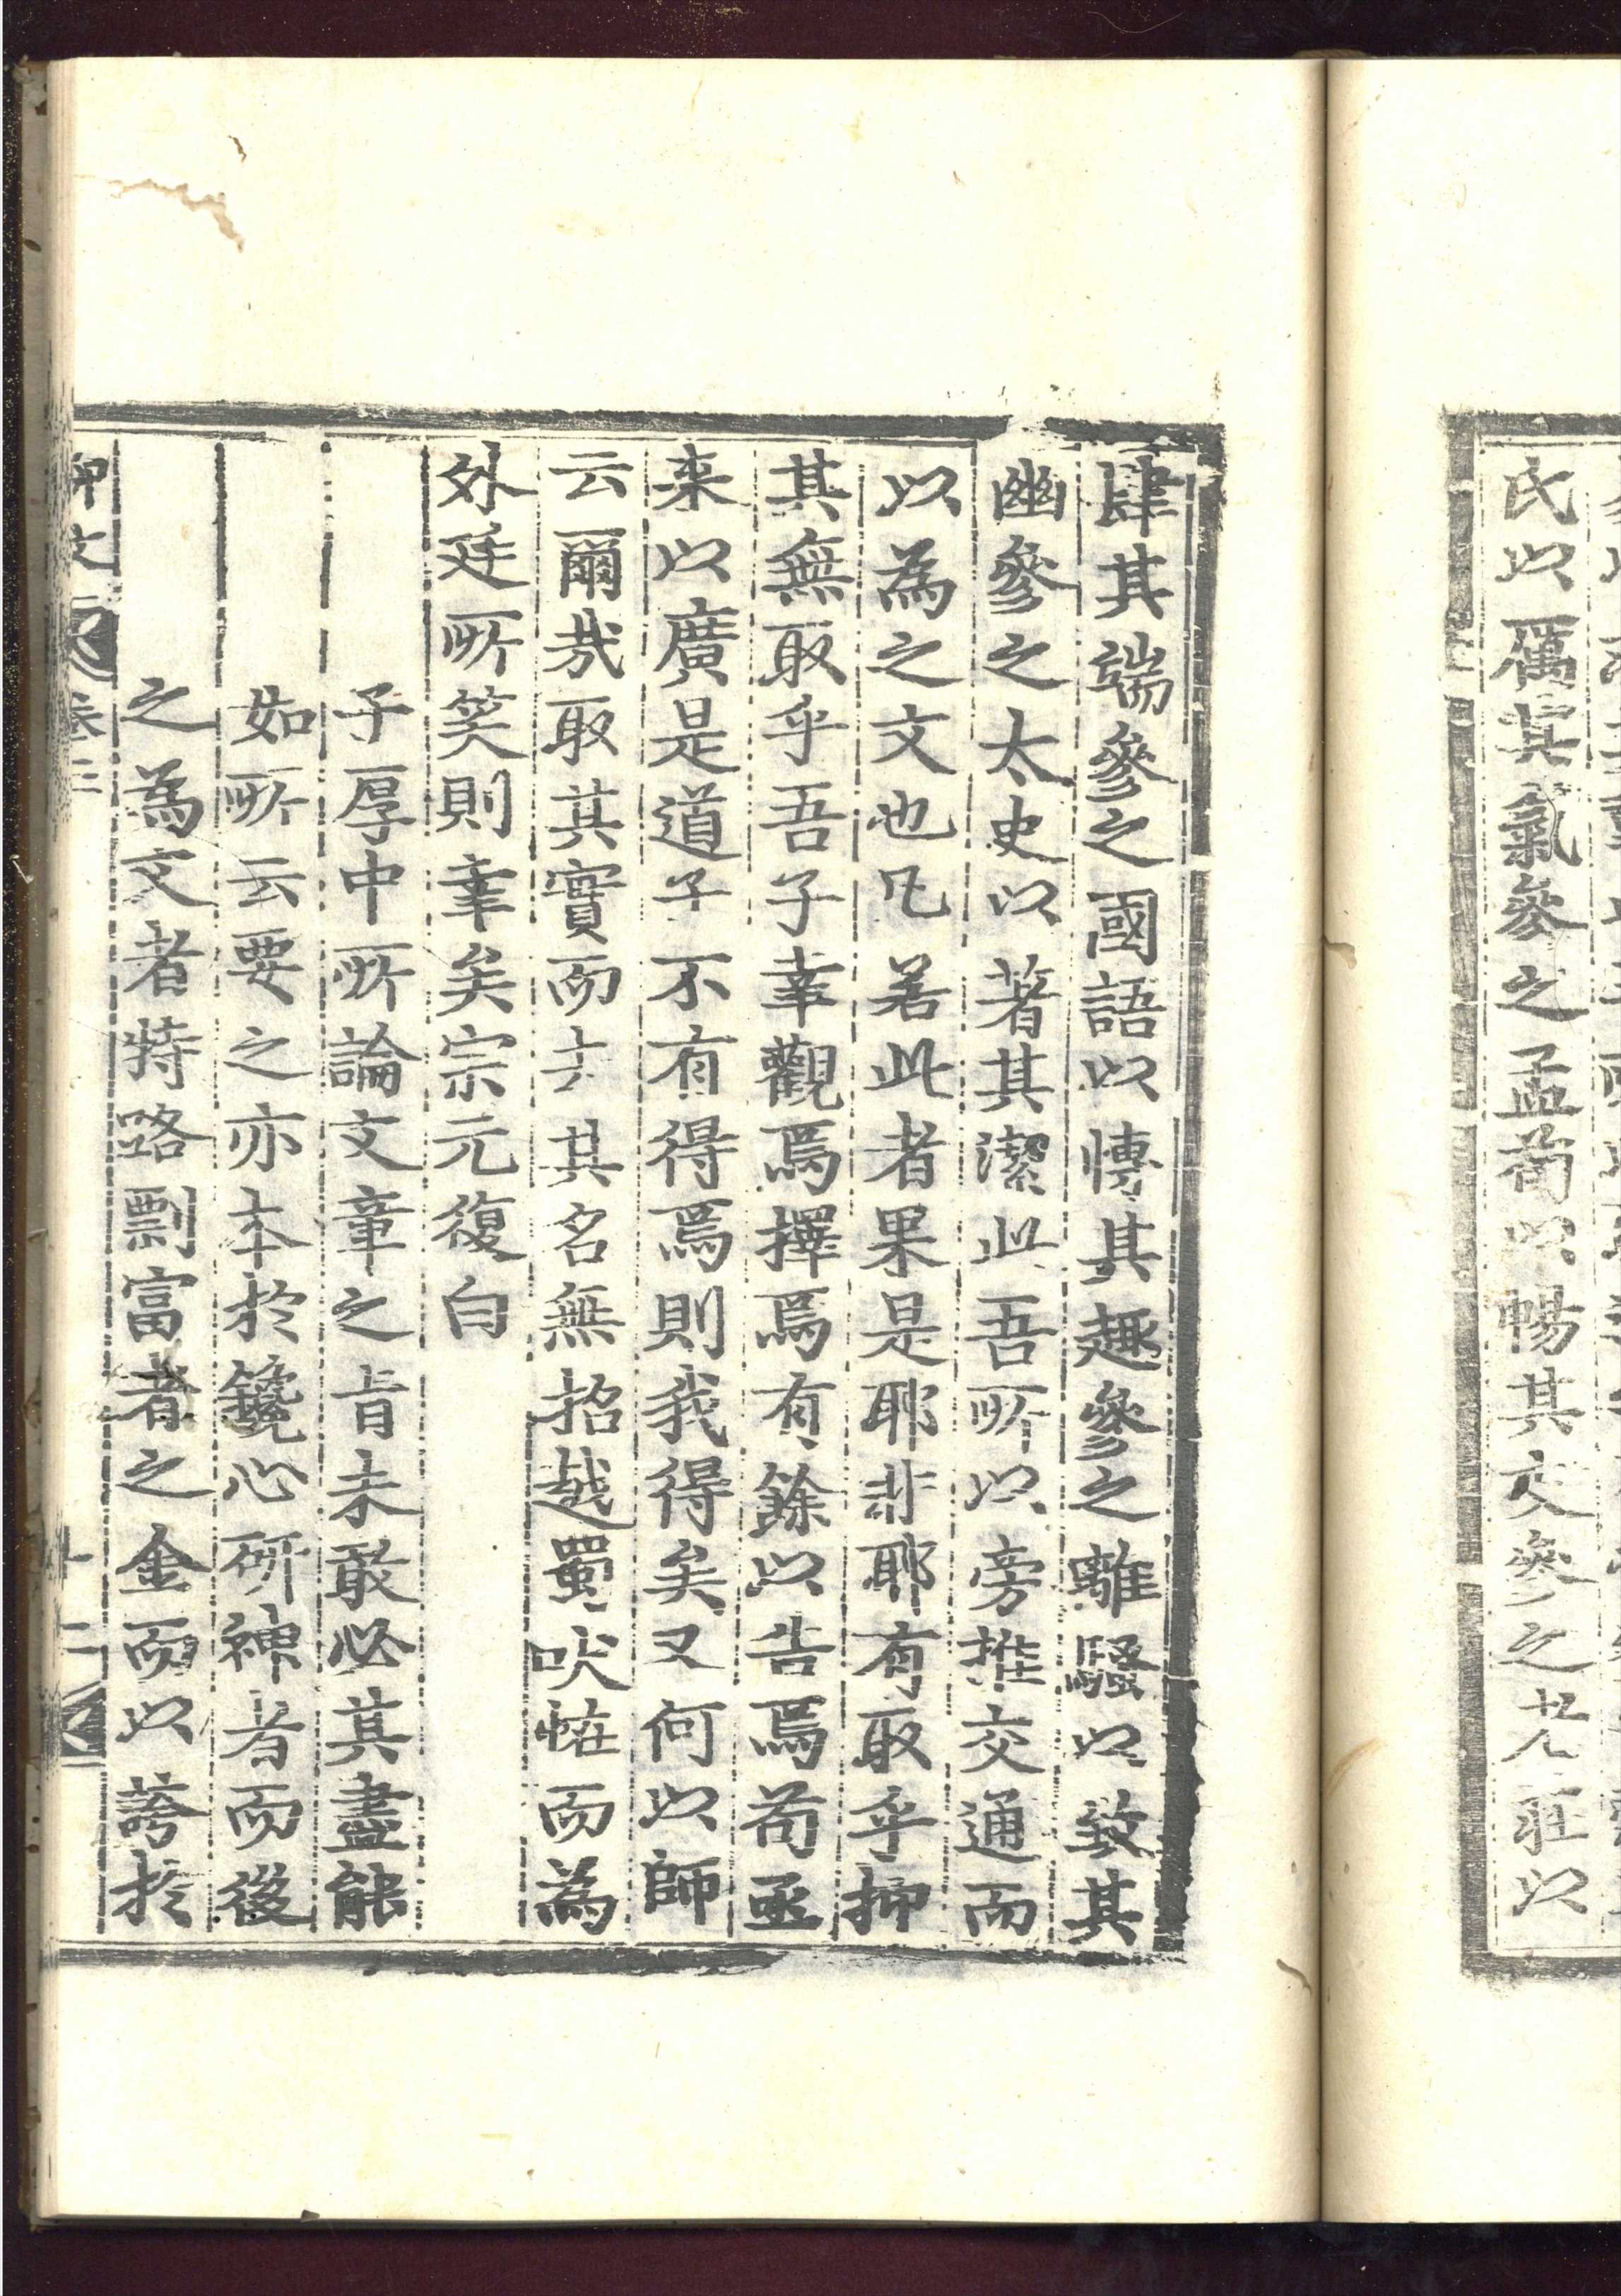 氏以厲其氣參之孟荀以暢其文參之老莊以
肆其端參之國語以愽其趣參之離騷以致其
幽參之太史以著其潔此吾所以旁推交通而
以為之文也凡若此者果是耶非耶有取乎抑
其無取乎吾子幸觀焉擇焉有餘以告焉苟亟
来以廣是道子不有得焉則我得矣又何以師
云爾㢤取其實而去其名無招越蜀吠恠而為
外廷所笑則幸矣宗元復白
子厚中所論文章之肯未敢必其盡能
如所云要之亦本於鑱心研神者而後
之為文者特路剽富者之金而以誇於
十二